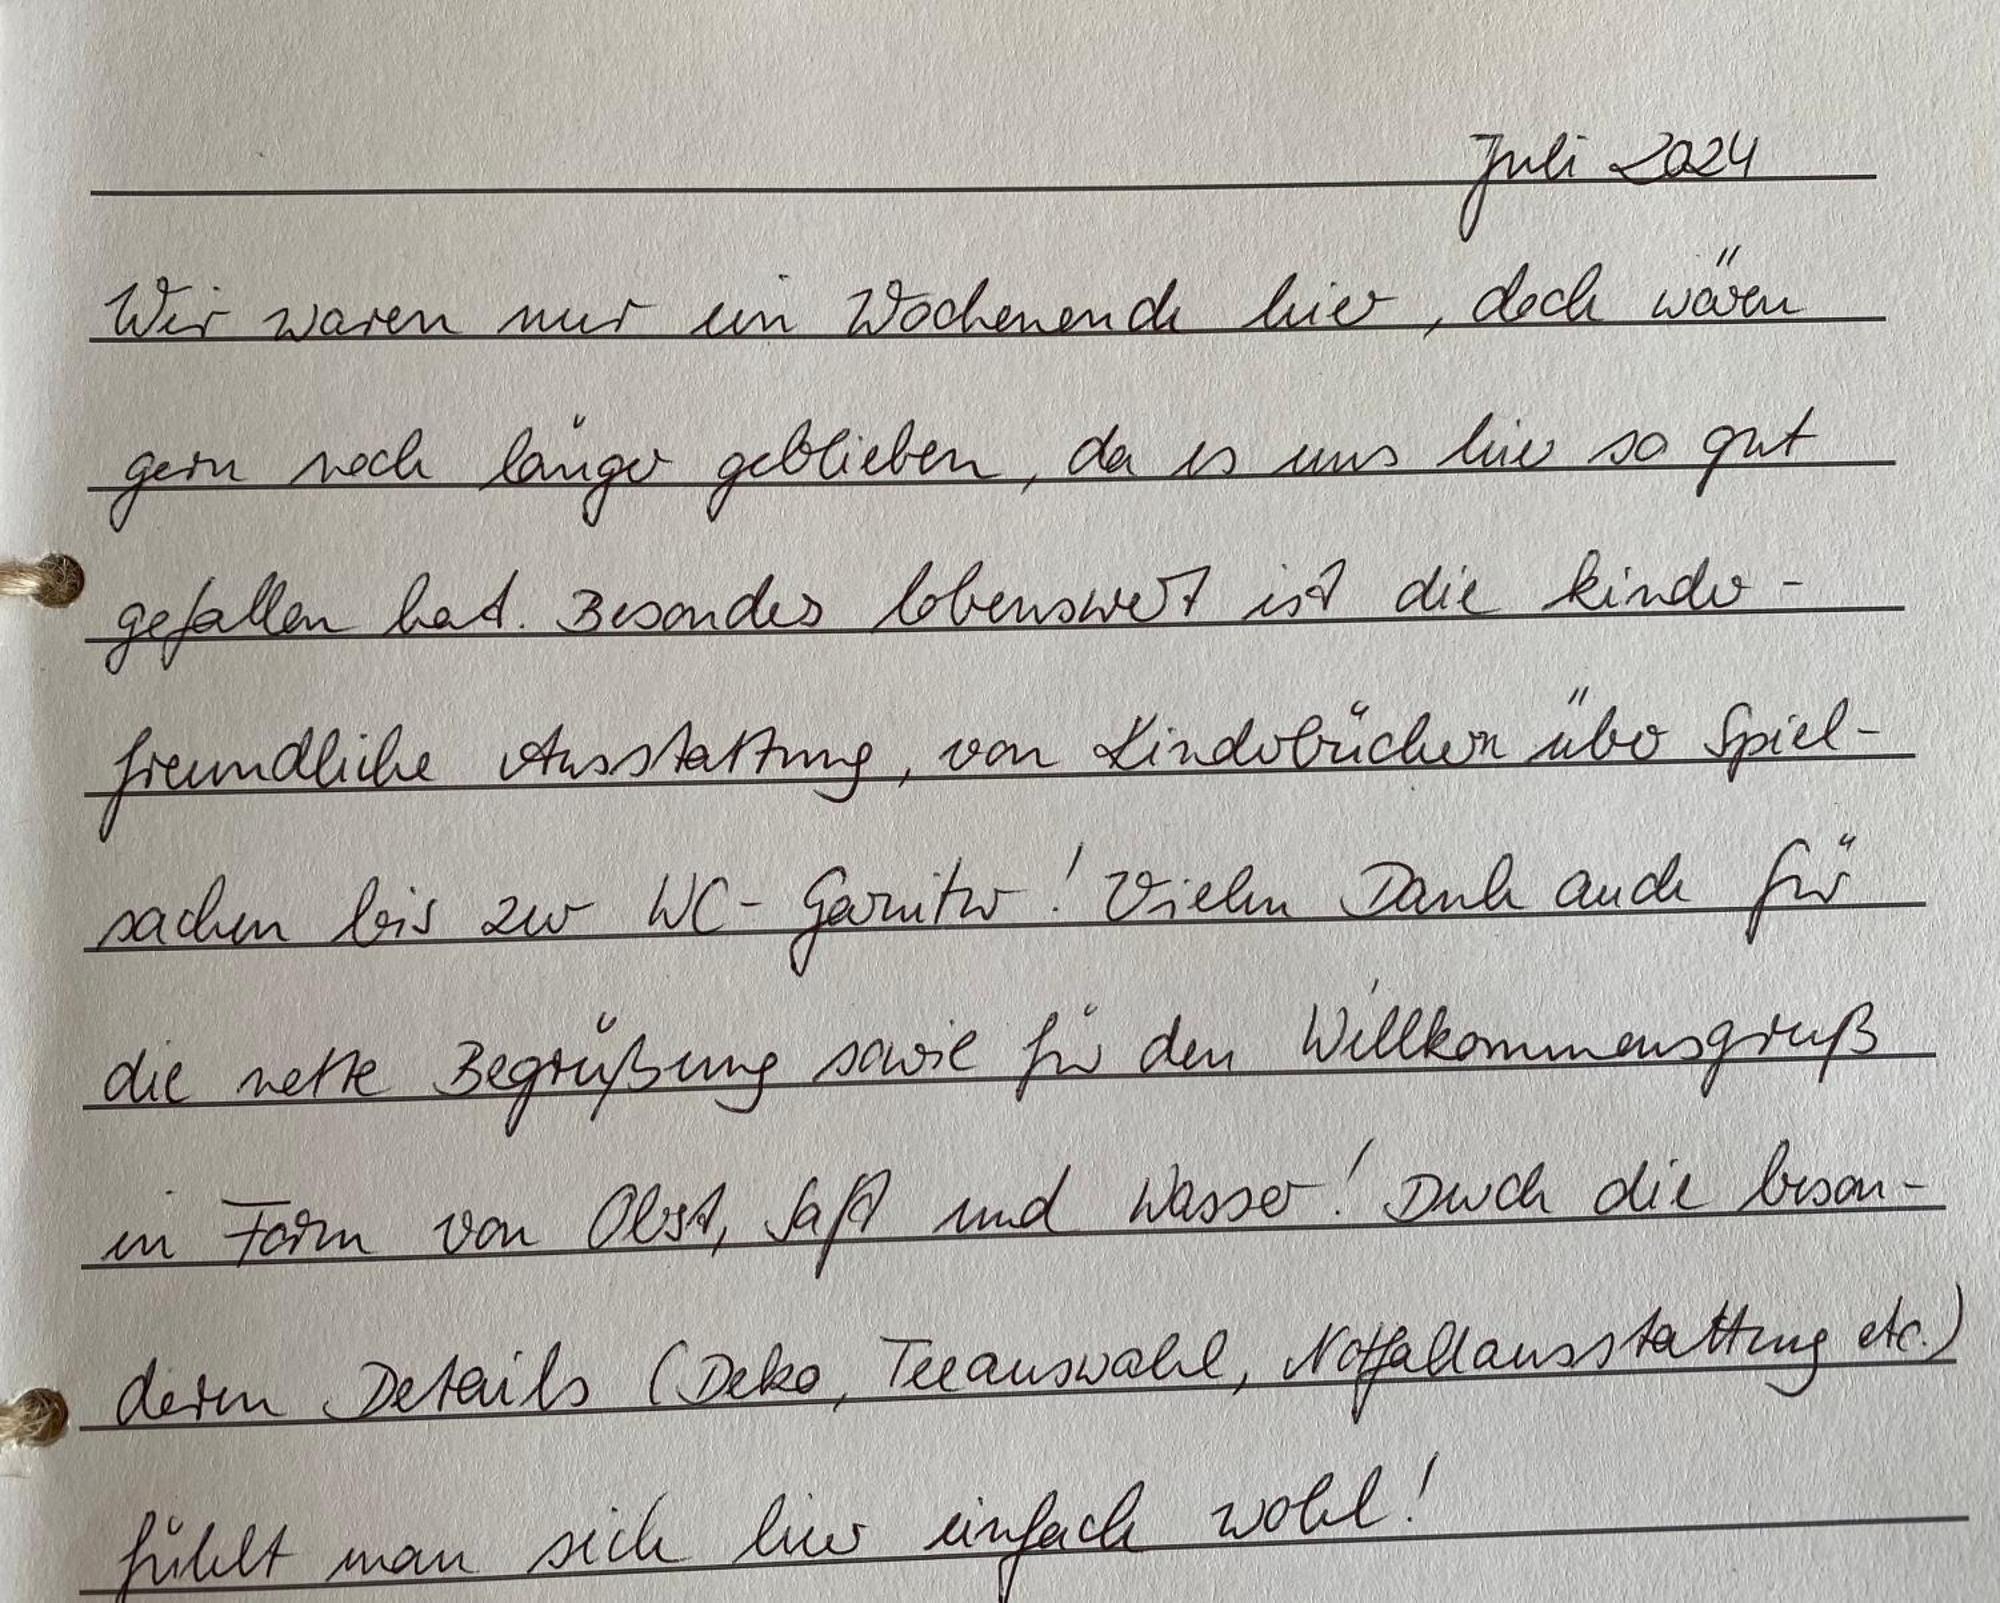 Juli 2024
Wir waren nur ein Wochenende hier, doch wären
gern noch länger geblieben, da es uns hier so gut
gefallen hat. Besonders lobenswert ist die kinder-
freundliche Ausstattung, von Kinderbüchern über Spiel-
sachen bis zur WC-Garnitur! Vielen Dank auch für
die nette Begrüßung sowie für den Willkommensgruß
in Form von Obst, Saft und Wasser! Durch die beson-
deren Details (Deko, Teeauswahl, Notfallausstattung etc.)
fühlt man sich hier einfach wohl!